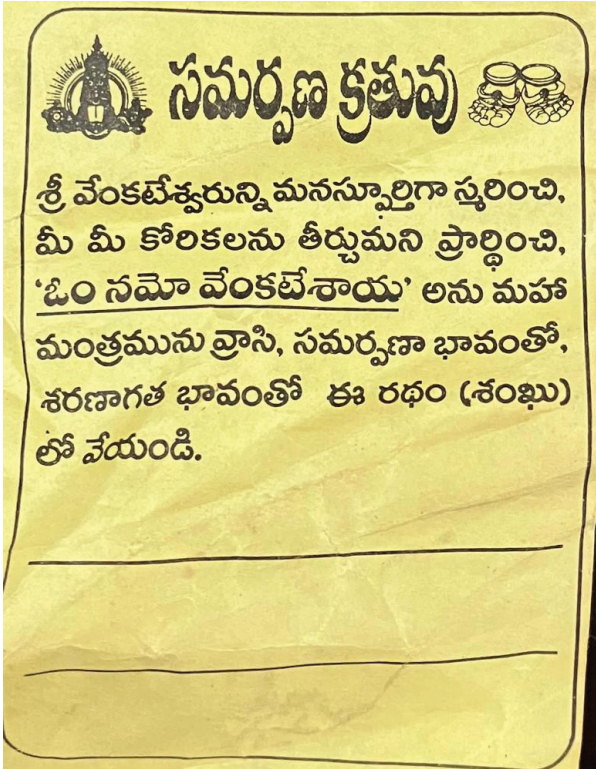 సమర్పణ క్రతువు
శ్రీ వేంకటేశ్వరున్ని మనస్ఫూర్తిగా స్మరించి,
మీ మీ కోరికలను తీర్చుమని ప్రార్థించి,
‘ఓం నమో వేంకటేశాయ’ అను మహా
మంత్రమును వ్రాసి, సమర్పణా భావంతో,
శరణాగత భావంతో ఈ రథం (శంఖు)
లో వేయండి.